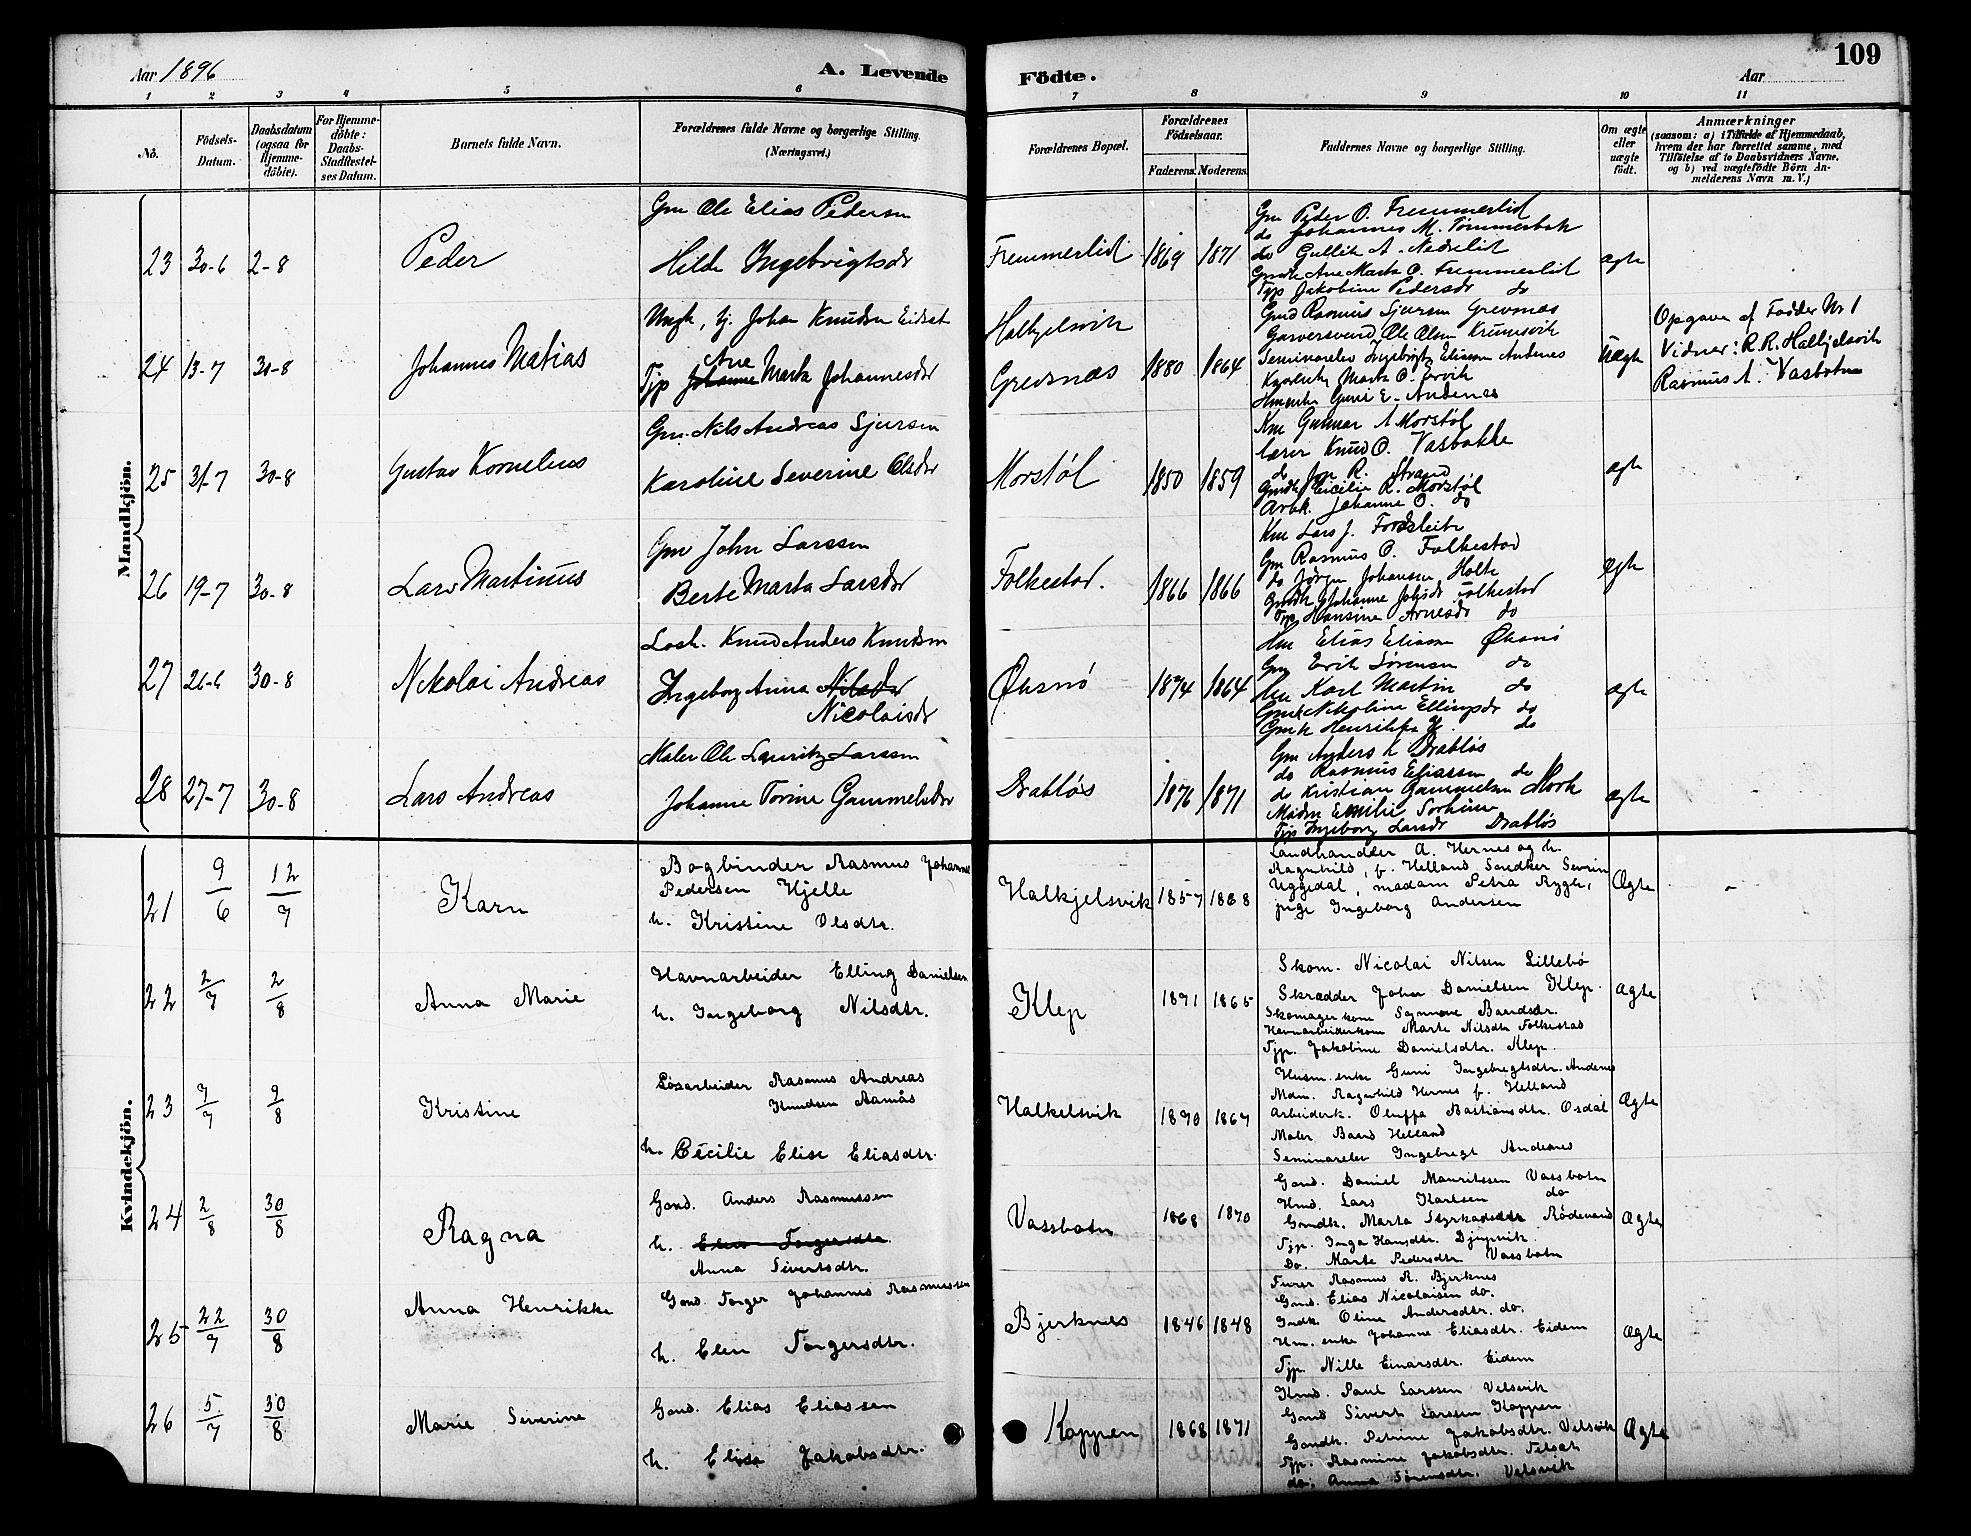 Aar 1896
A. Levende
Födte.
Aar
109
1 2 3 4 5 6 7 8 9 10 11
No.
Födsels-Datum.
Daabsdatum (ogsaa for Hjemmedöbte).
For Hjemmedöbte: Daabs-Stadfæstelses Datum.
Barnets fulde Navn.
Forældrenes fulde Navne og borgerlige Stilling. (Næringsvei.)
Forældrenes Bopæl.
Forældrenes Födselsaar.
Faderens. Moderens.
Faddernes Navne og borgerlige Stilling.
Om ægte eller uægte födt.
Anmærkninger
(saasom: a) i Tilfælde af Hjemmedaab,
hvem der har forrettet samme, med
Tilföielse af to Daabsvidners Navne,
og b) ved uægtefödte Börn An-
melderens Navn m. V.)
Mandkjön.
23 30-6 2-8
Peder
Gm Ole Elias Pedersen
Hilde Ingebrigtsdr
Fremmerlid 1869 1871
Gm Peder O. Fremmerlid
do Johannes M. Tømmerbak
do Gullik A. Nedrelid
Gmdk Ane Marta O. Fremmerlid
Typ Jakobine Pedersdr do
ægte
24 13-7 30-8
Johannes Matias
Ungk, tj. Johan Knudsen Eidset
Ane
Typ Johanne Marta Johannesdr
Halkjelsvik
Grevsnæs 1880 1864
Gmd Rasmus Sjursen Grevsnæs
Garversvend Ole Olsen Krumsvik
Seminarelev Ingebrigt Eliassen Andenes
Marta O. Ervik
Hmenke Guni E. Andenes
Uægte
Opgave af Fadder Nr 1
Vidner: R. R. Halkjelsvik
Rasmus A. Vasbotn
25 31-7 30-8
Gustav Kornelius
Gm. Nils Andreas Sjursen
Karoline Severine Olsdr
Morstøl 1850 1859
Km Gunnar A Morstøl
Lærer Knud O. Vasbakke
do R. Strand
Gmdk Cicilie R. Morstøl
Arbk. Johanne O. do
ægte
26 19-7 30-8
Lars Martinus
Gm John Larssen
Berte Marta Larsdr
Folkestad. 1866 1866
Km Lars J. Fordsleite
Gm Rasmus O. Folkestad
do Jørgen Johansen Holte
Gmdk Johanne Johsdr Folkestad
Typ Hansine Arnesdr do
Ægte
27 26-6 30-8
Nikolai Andreas
Losk. Knud Anders Knudsen
Ingeborg Anna Nilsdr
Nicolaisdr
Øksnø 1874 1864
Hm Elias Eliassen Øksnø
Gm Erik Sørensen do
Hm Karl Martin do
Gmk Nikoline Ellingsdr do
Gmk Henrikke do
ægte
28 27-7 30-8
Lars Andreas
Maler Ole Lauritz Larssen
Johanne Torine Gammelsdr
Drabløs 1876 1871
Gm Anders K Drabløs
do Rasmus Eliassen do
do Kristian Gammelsen Mork
Madm Emilie
Typ Ingeborg Larsdr Drabløs
ægte
Kvindekjön.
21 9/6 12/7
Karn
Bogbinder Rasmus Johannes
Pedersen Hjelle
h. Kristine Olsdtr.
Halkjelsvik 1857 1868
Landhandler A. Hernes og h.
Ragnhild, f. Helland Snedker Severin
Uggedal, madam Petra Rygh,
pige Ingeborg Andersen
Ægte
22 2/7 2/8
Anna Marie
Havnarbeider Elling Danielsen
h. Ingeborg Nilsdtr.
Klep 1871 1865
Skom. Nicolai Nilsen Lillebø
Skrædder Johan Danielsen Klep.
Skomagerkone Synnøve Baardsdr.
Havnarbeiderkone Marte Nilsdtr Folkestad
Typ. Jakobine Danielsdtr. Klep.
Ægte
23 7/7 9/8
Kristine
Løsarbeider Rasmus Andreas
Knudsen Aamås
h. Cecilie Elise Eliasdtr.
Halkelsvik 1870 1867
Husm. enke Guni Ingebregtsdtr. Andenes
Mdm. Ragnhild Hernes f. Helland
Arbeiderk. Oluffa Bastiansdtr. Osdal
Maler Baard Helland
Seminarelev Ingebregt Andenes
Ægte
24 2/8 30/8
Ragna
Gmd. Anders Rasmussen
h. Elen Torgersdtr.
Anna Sivertsdtr.
Vassbotn 1868 1870
Gmd. Daniel Mauritssen Vassbotn
Hmd. Lars Karlsen do
Gmdk. Marta Styrkadsdtr Rödesand
Typ. Inga Hansdtr. Djupvik.
Do. Marte Pedersdtr Vassbotn
Ægte
25 22/7 30/8
Anna Henrikke
Gmd. Torger Johannes Rasmussen
h. Elen Torgersdtr.
Bjerknes 1846 1848
Furer Rasmus R. Bjerknes
Gmd. Elias Nicolaisen do.
Gmdk. Oline Andersdtr. do.
Hm. enke Johanne Eliasdtr. Eidem
Typ. Nille Einarsdtr. Eidem
Ægte
26 5/7 30/8
Marie Severine
Gmd. Elias Eliassen
h. Elise Jakobsdtr.
Koppen 1868 1871
Kmd. Paul Larssen Velsvik
Gmd Sivert Larssen Koppen
Gmdk. Petrine Jakobsdtr. Velsvik
Typ. Rasmine Jakobsdtr.
do. Anna Sörensdtr. Velsvik
Ægte